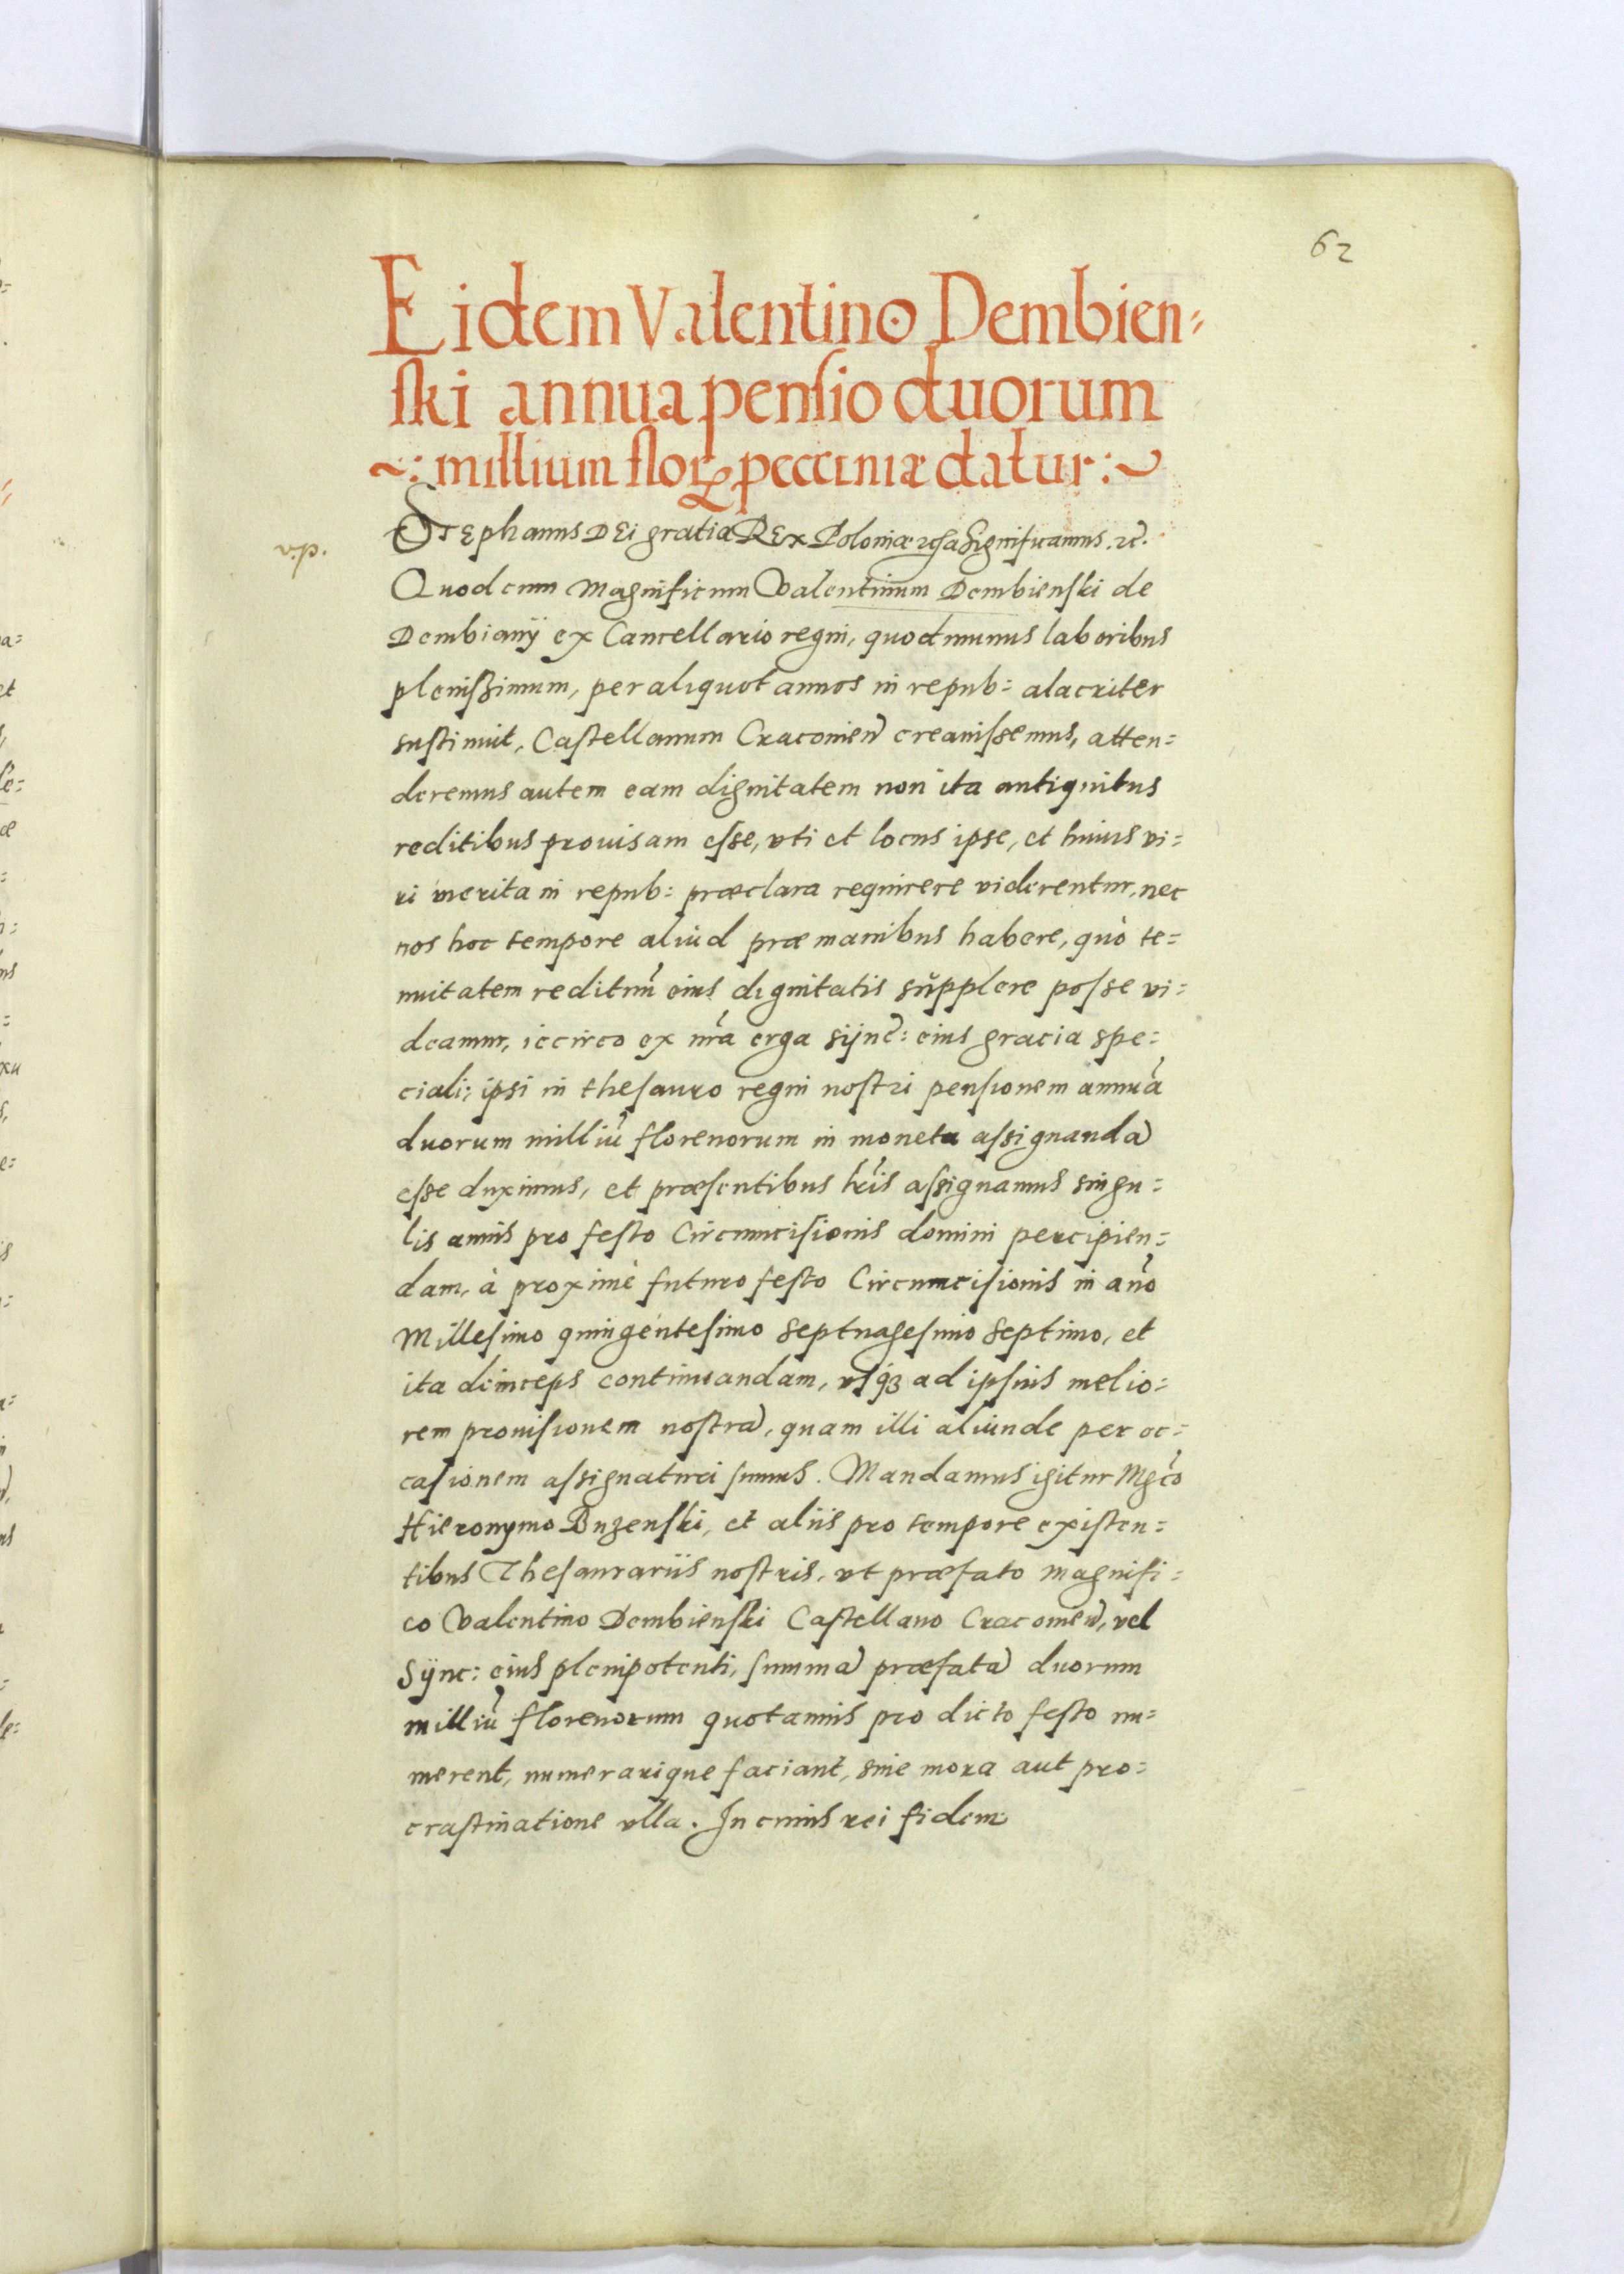 62
Eidem Valentino Dembien=
ski annua pensio duorum
~: millium floꝝ pecuniæ datur :~
v.p.
Stephanus DEi gratia REx Poloniæ Significamus. ꝛc̃.
Quod cum Magnificum Valentinum Dembienski de
Dembianÿ ex Cancellario regni, quod munus laboribus
plenißimum, per aliquot annos in repub= alacriter
sustinuit, Castellanum Cracovien̄ creauissemus, atten=
deremus autem eam dignitatem non ita antiquitus
reditibus prouisam esse, vti et locus ipse, et huius vi=
ri merita in repub= præclara requirere viderentur, nec
nos hoc tempore aliud præ manibus habere, quò te=
nuitatem redituũ eius dignitatis supplere posse vi=
deamur, iccirco ex nrã erga sÿnc̃: eius gracia spe=
ciali; ipsi in thesauro regni nostri pensionem annuã
duorum milliũ florenorum in moneta assignandã
esse duximus, et præsentibus lr̃is assignamus singu=
lis annis pro festo Circumcisionis domini percipien=
dam, à proximè futuro festo Circumcisionis in añno
Millesimo quingentesimo septuagesimo septimo, et
ita deinceps continuandam, vsqꝫ ad ipsius melio=
rem prouisionem nostrã, quam illi aliunde per oc=
casionem assignaturi sumus. Mandamus igitur Mgc̃o
Hieronymo Buzenski, et aliis pro tempore existen=
tibus Thesaurariis nostris, vt præfato magnifi=
co Valentino Dembienski Castellano Cracouien̄, vel
Sÿnc: eius plenipotenti, summã præfatã duorum
milliũ florenorum quotannis pro dicto festo nu=
merent, numerarique faciant, sine mora aut pro=
crastinatione vlla. In cuius rei fidem